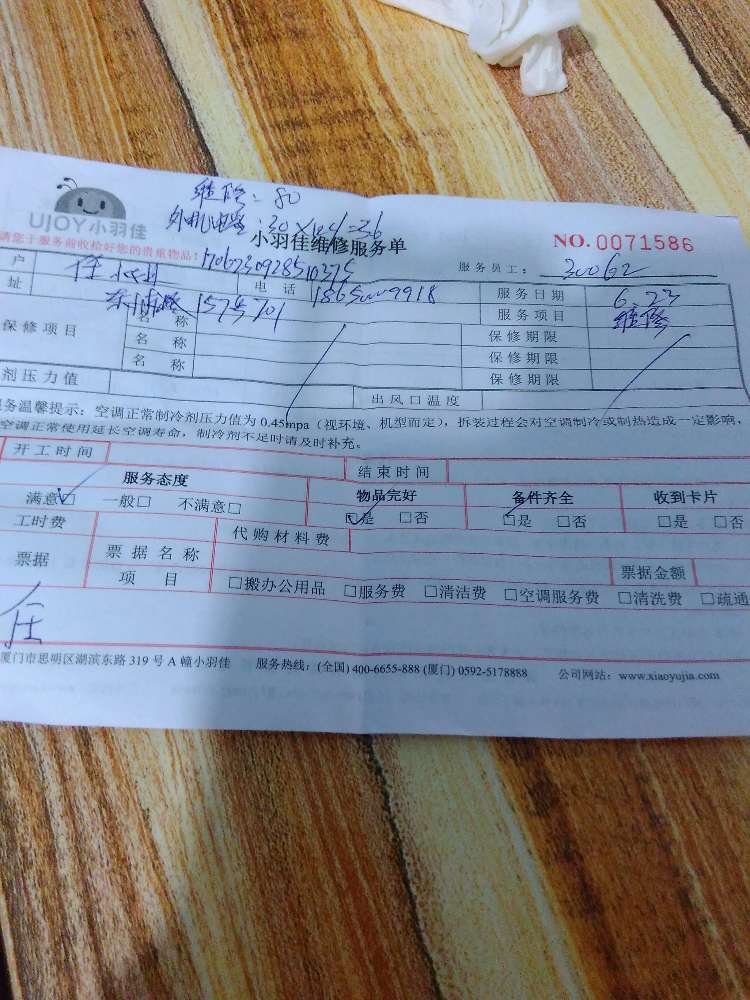 维修:80
UJOY小羽佳
小羽佳维修服务单
NO.0071586
请您于服务前收拾好您的贵重物品!
户
服务员工:
30062
址
电话
服务日期
6.23
157号701
服务项目
维修
保修项目
名称
保修期限
名称
保修期限
名称
保修期限
剂压力值
出风口温度
务温馨提示:空调正常制冷剂压力值为0.45mpa(视环境、机型而定),拆装过程会对空调制冷或制热造成一定影响,
空调正常使用延长空调寿命,制冷剂不足时请及时补充。
开工时间
结束时间
服务态度
物品完好
备件齐全
收到卡片
满意☑ 一般□ 不满意□
☑是 □否
☑是 □否
□是 □否
工时费
代购材料费
票据
票据名称
票据金额
项目
□搬办公用品 □服务费 □清洁费 □空调服务费 □清洗费 □疏通
任
厦门市思明区湖滨东路319号A幢小羽佳 服务热线:(全国)400-6655-888(厦门)0592-5178888 公司网站:www.xiaoyujia.com